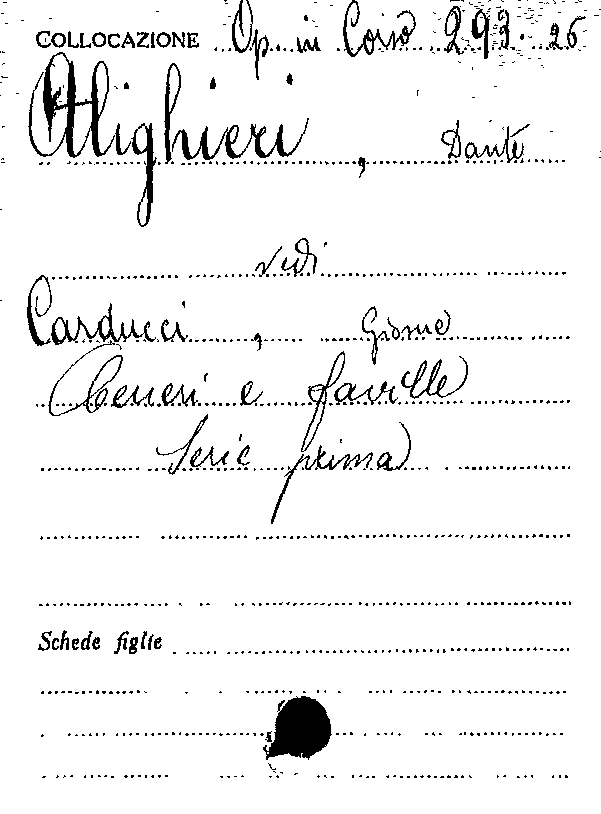 COLLOCAZIONE Op. in Corso 293. 26
Alighieri, Dante
vedi
Carducci, Giosue
Ceneri e faville
Serie prima
Schede figlie